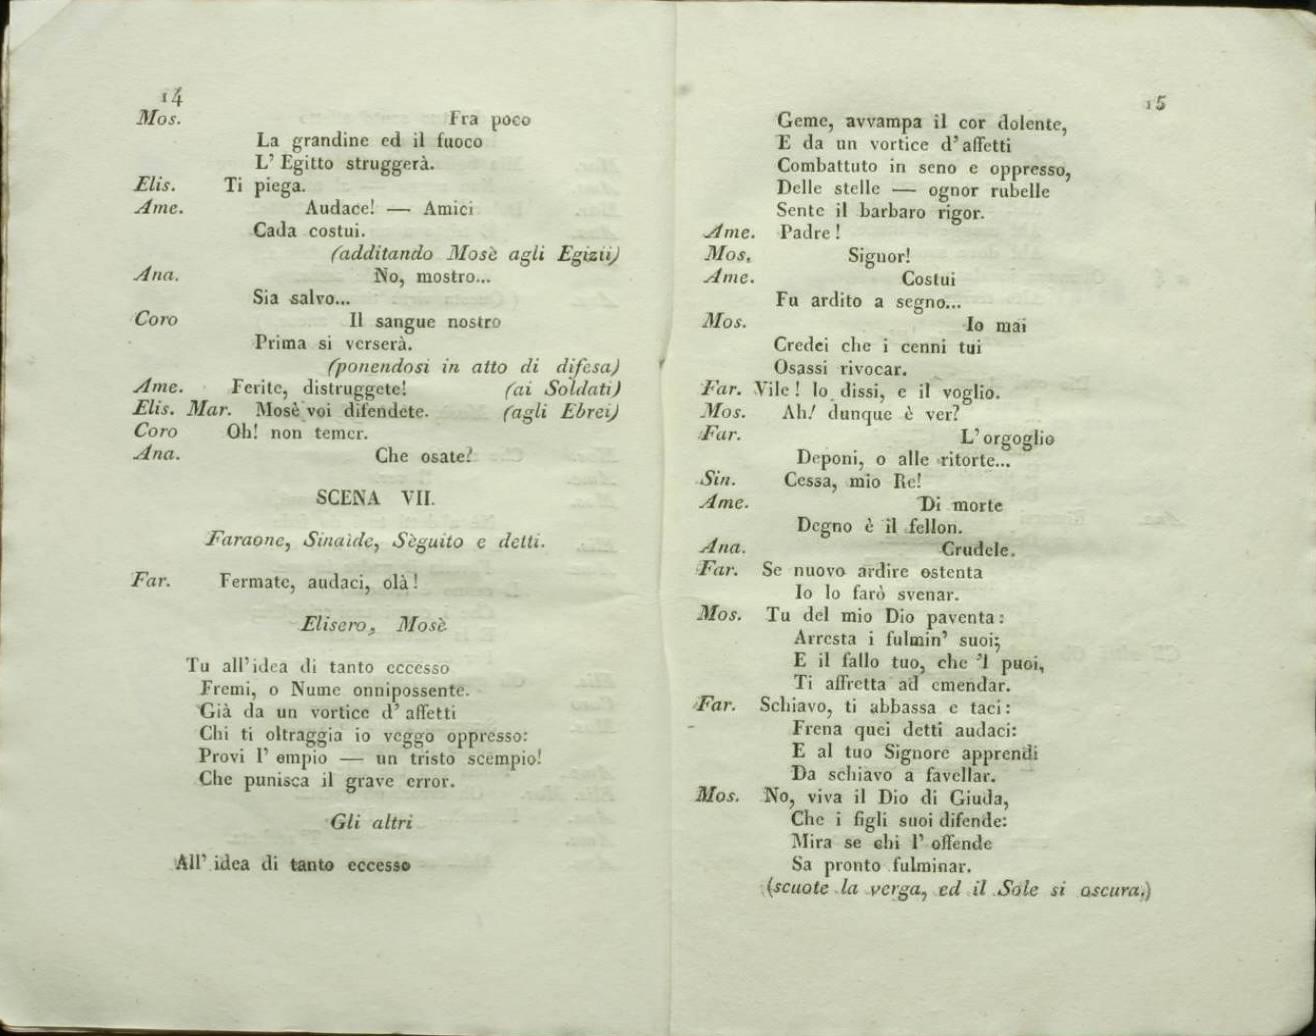 14
Mos. Fra poco
La grandine ed il fuoco
L' Egitto struggerà.
Elis. Ti piega.
Ame. Audace! — Amici
Cada costui.
(additando Mosè agli Egizii)
Ana. No, mostro...
Sia salvo...
Coro Il sangue nostro
Prima si verserà.
(ponendosi in atto di difesa)
Ame. Ferite, distruggete! (ai Soldati)
Elis. Mar. Mosè voi difendete. (agli Ebrei)
Coro Oh! non temer.
Ana. Che osate?
SCENA VII.
Faraone, Sinaide, Sèguito e detti.
Far. Fermate, audaci, olà!
Elisero, Mosè
Tu all'idea di tanto eccesso
Fremi, o Nume onnipossente.
Già da un vortice d' affetti
Chi ti oltraggia io veggo oppresso:
Provi l' empio — un tristo scempio!
Che punisca il grave error.
Gli altri
All' idea di tanto eccesso
15
Geme, avvampa il cor dolente,
E da un vortice d' affetti
Combattuto in seno e oppresso,
Delle stelle — ognor rubelle
Sente il barbaro rigor.
Ame. Padre!
Mos. Signor!
Ame. Costui
Fu ardito a segno...
Mos. Io mai
Credei che i cenni tui
Osassi rivocar.
Far. Vile! lo dissi, e il voglio.
Mos. Ah! dunque è ver?
Far. L' orgoglio
Deponi, o alle ritorte...
Sin. Cessa, mio Re!
Ame. Di morte
Degno è il fellon.
Ana. Crudele.
Far. Se nuovo ardire ostenta
Io lo farò svenar.
Mos. Tu del mio Dio paventa:
Arresta i fulmin' suoi;
E il fallo tuo, che 'l puoi,
Ti affretta ad emendar.
Far. Schiavo, ti abbassa e taci:
Frena quei detti audaci:
E al tuo Signore apprendi
Da schiavo a favellar.
Mos. No, viva il Dio di Giuda,
Che i figli suoi difende:
Mira se chi l' offende
Sa pronto fulminar.
(scuote la verga, ed il Sole si oscura.)